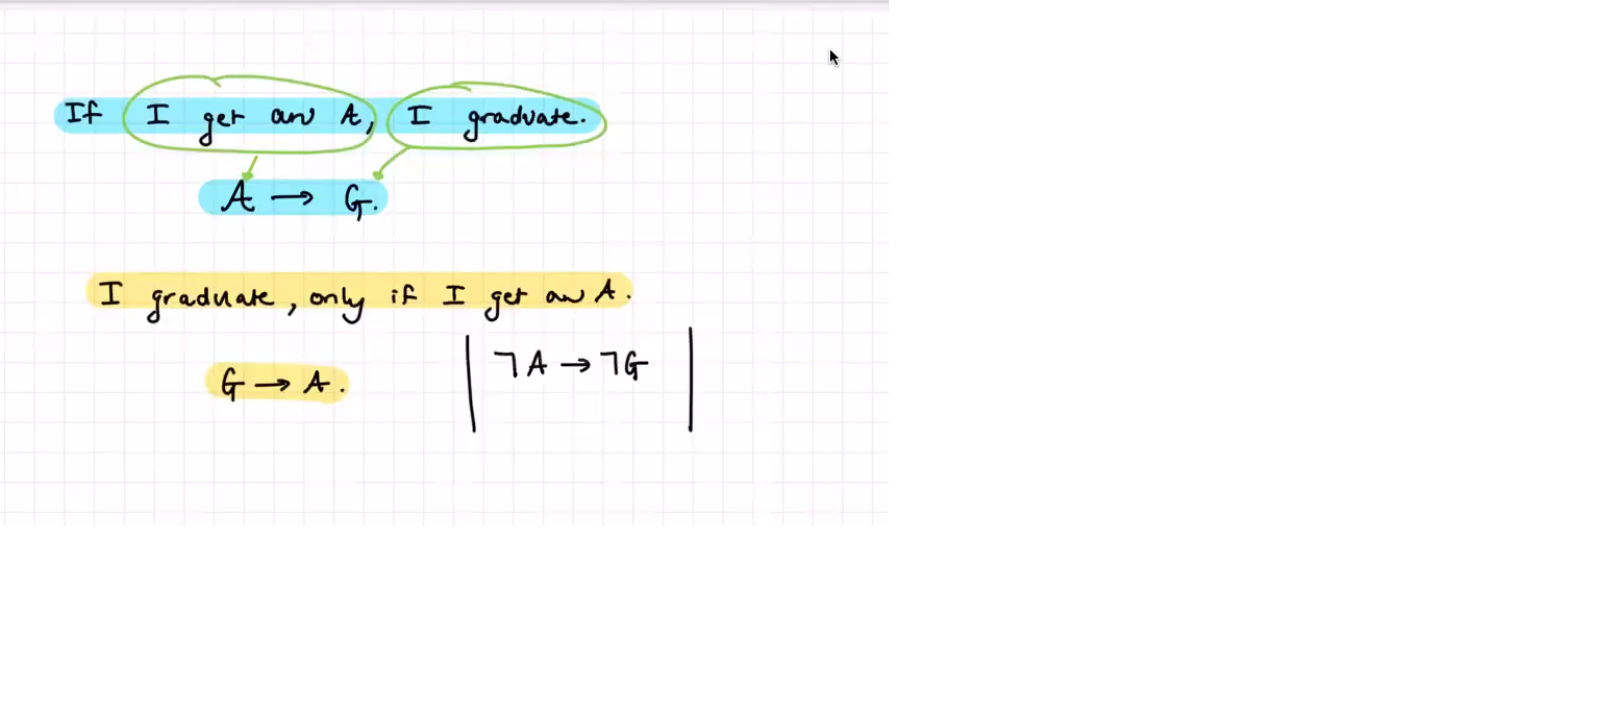 If I get an A, I graduate.
A → G.
I graduate, only if I get an A.
G → A.
¬A → ¬G